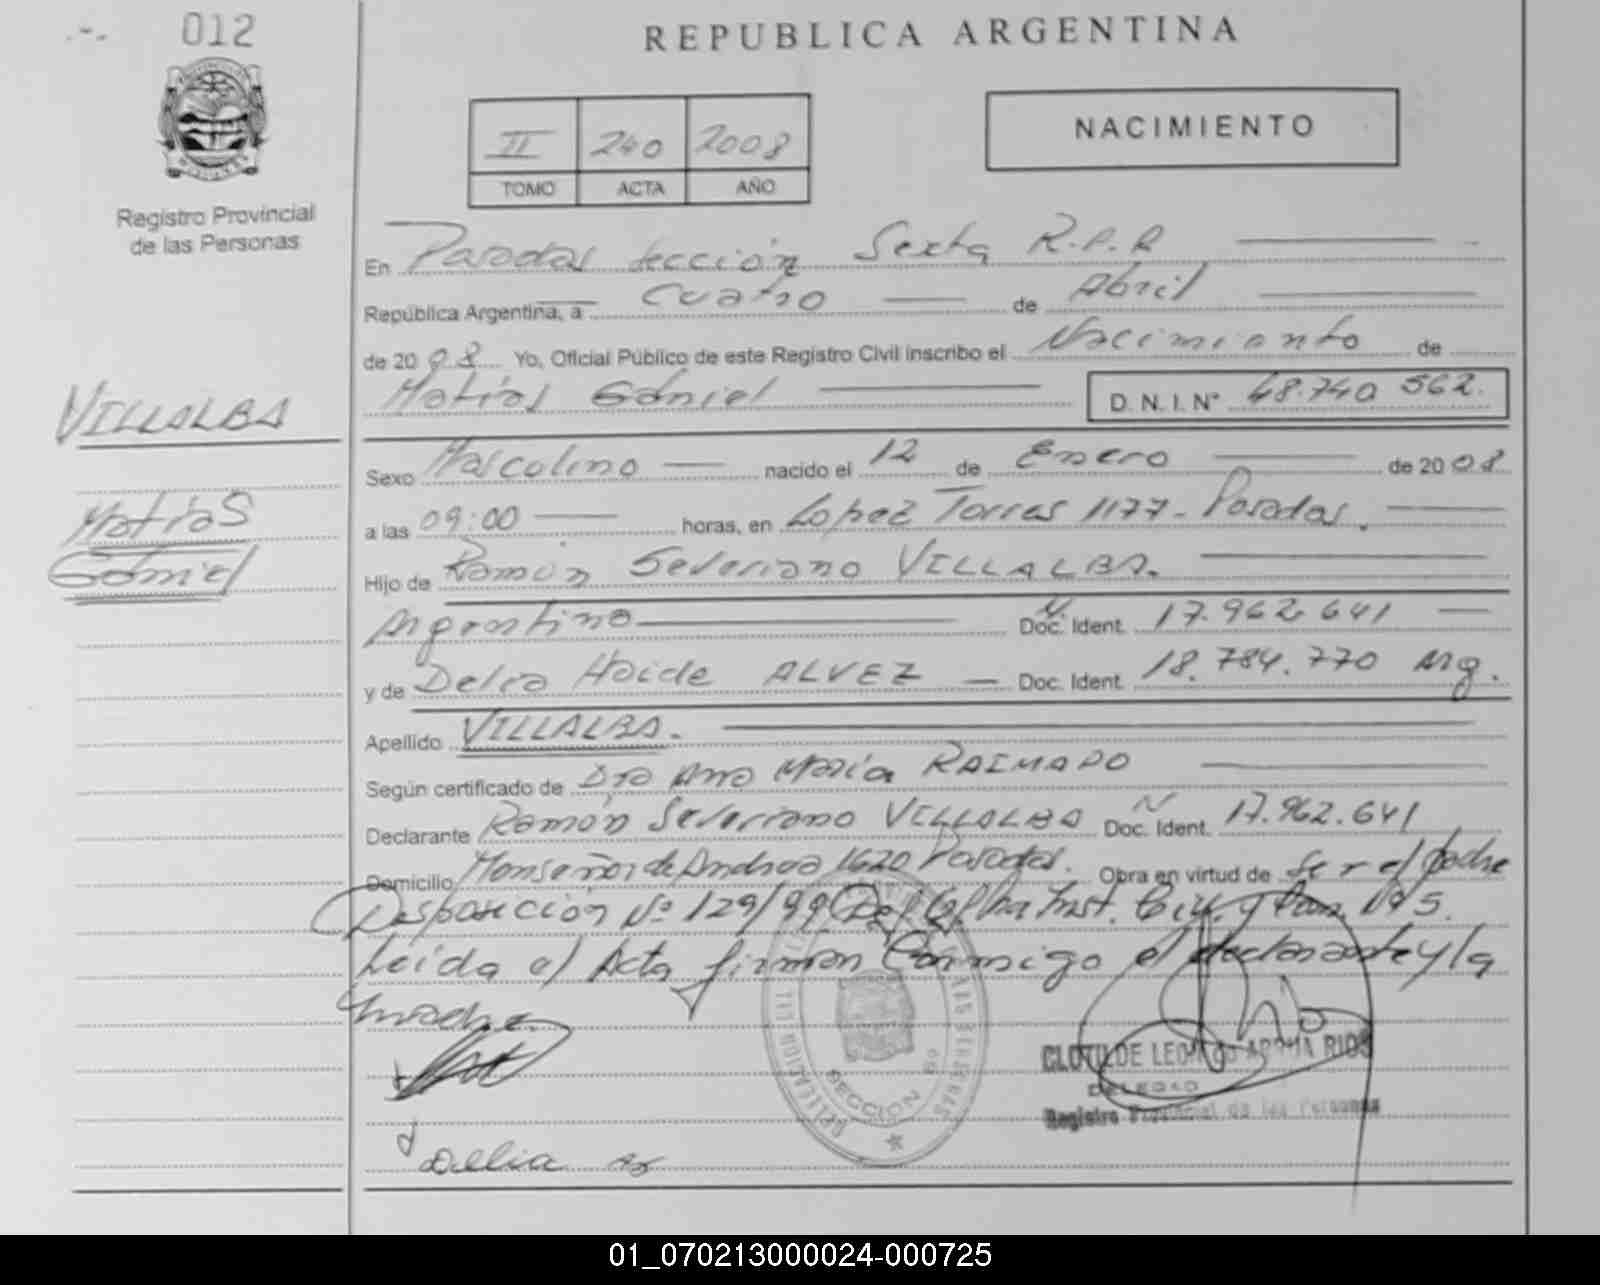 012
REPUBLICA ARGENTINA
II 240 2008
TOMO ACTA AÑO
NACIMIENTO
Registro Provincial
de las Personas
En Posadas sección Sexta R.P.P
República Argentina, a Cuatro de Abril
de 2008 Yo, Oficial Público de este Registro Civil inscribo el Nacimiento de
Matías Gabriel D.N.I.N° 48.740 562.
VILLALBA
Matías
Gabriel
Sexo Masculino nacido el 12 de Enero de 2008
a las 09:00 horas, en Lopez Torres 1177 - Posadas.
Hijo de Ramón Severiano VILLALBA.
Argentino Doc. Ident. 17.962.641
y de Delia Haide ALVEZ Doc. Ident. 18.784.770 Arg.
Apellido VILLALBA.
Según certificado de Dra Ana María
Declarante Ramón Severiano VILLALBA Doc. Ident. 17.962.641
Domicilio Monseñor de Andrea 1620 Posadas. Obra en virtud de Ser el padre
Disposición Nº 129/99 Inst. Civ. y Nº 5.
Leída el Acta firman Conmigo el declarante y la
madre
SECCION 6º
CLOTILDE RIOS
DELEGAD
Registro Provincial de las Personas
Delia
01_070213000024-000725